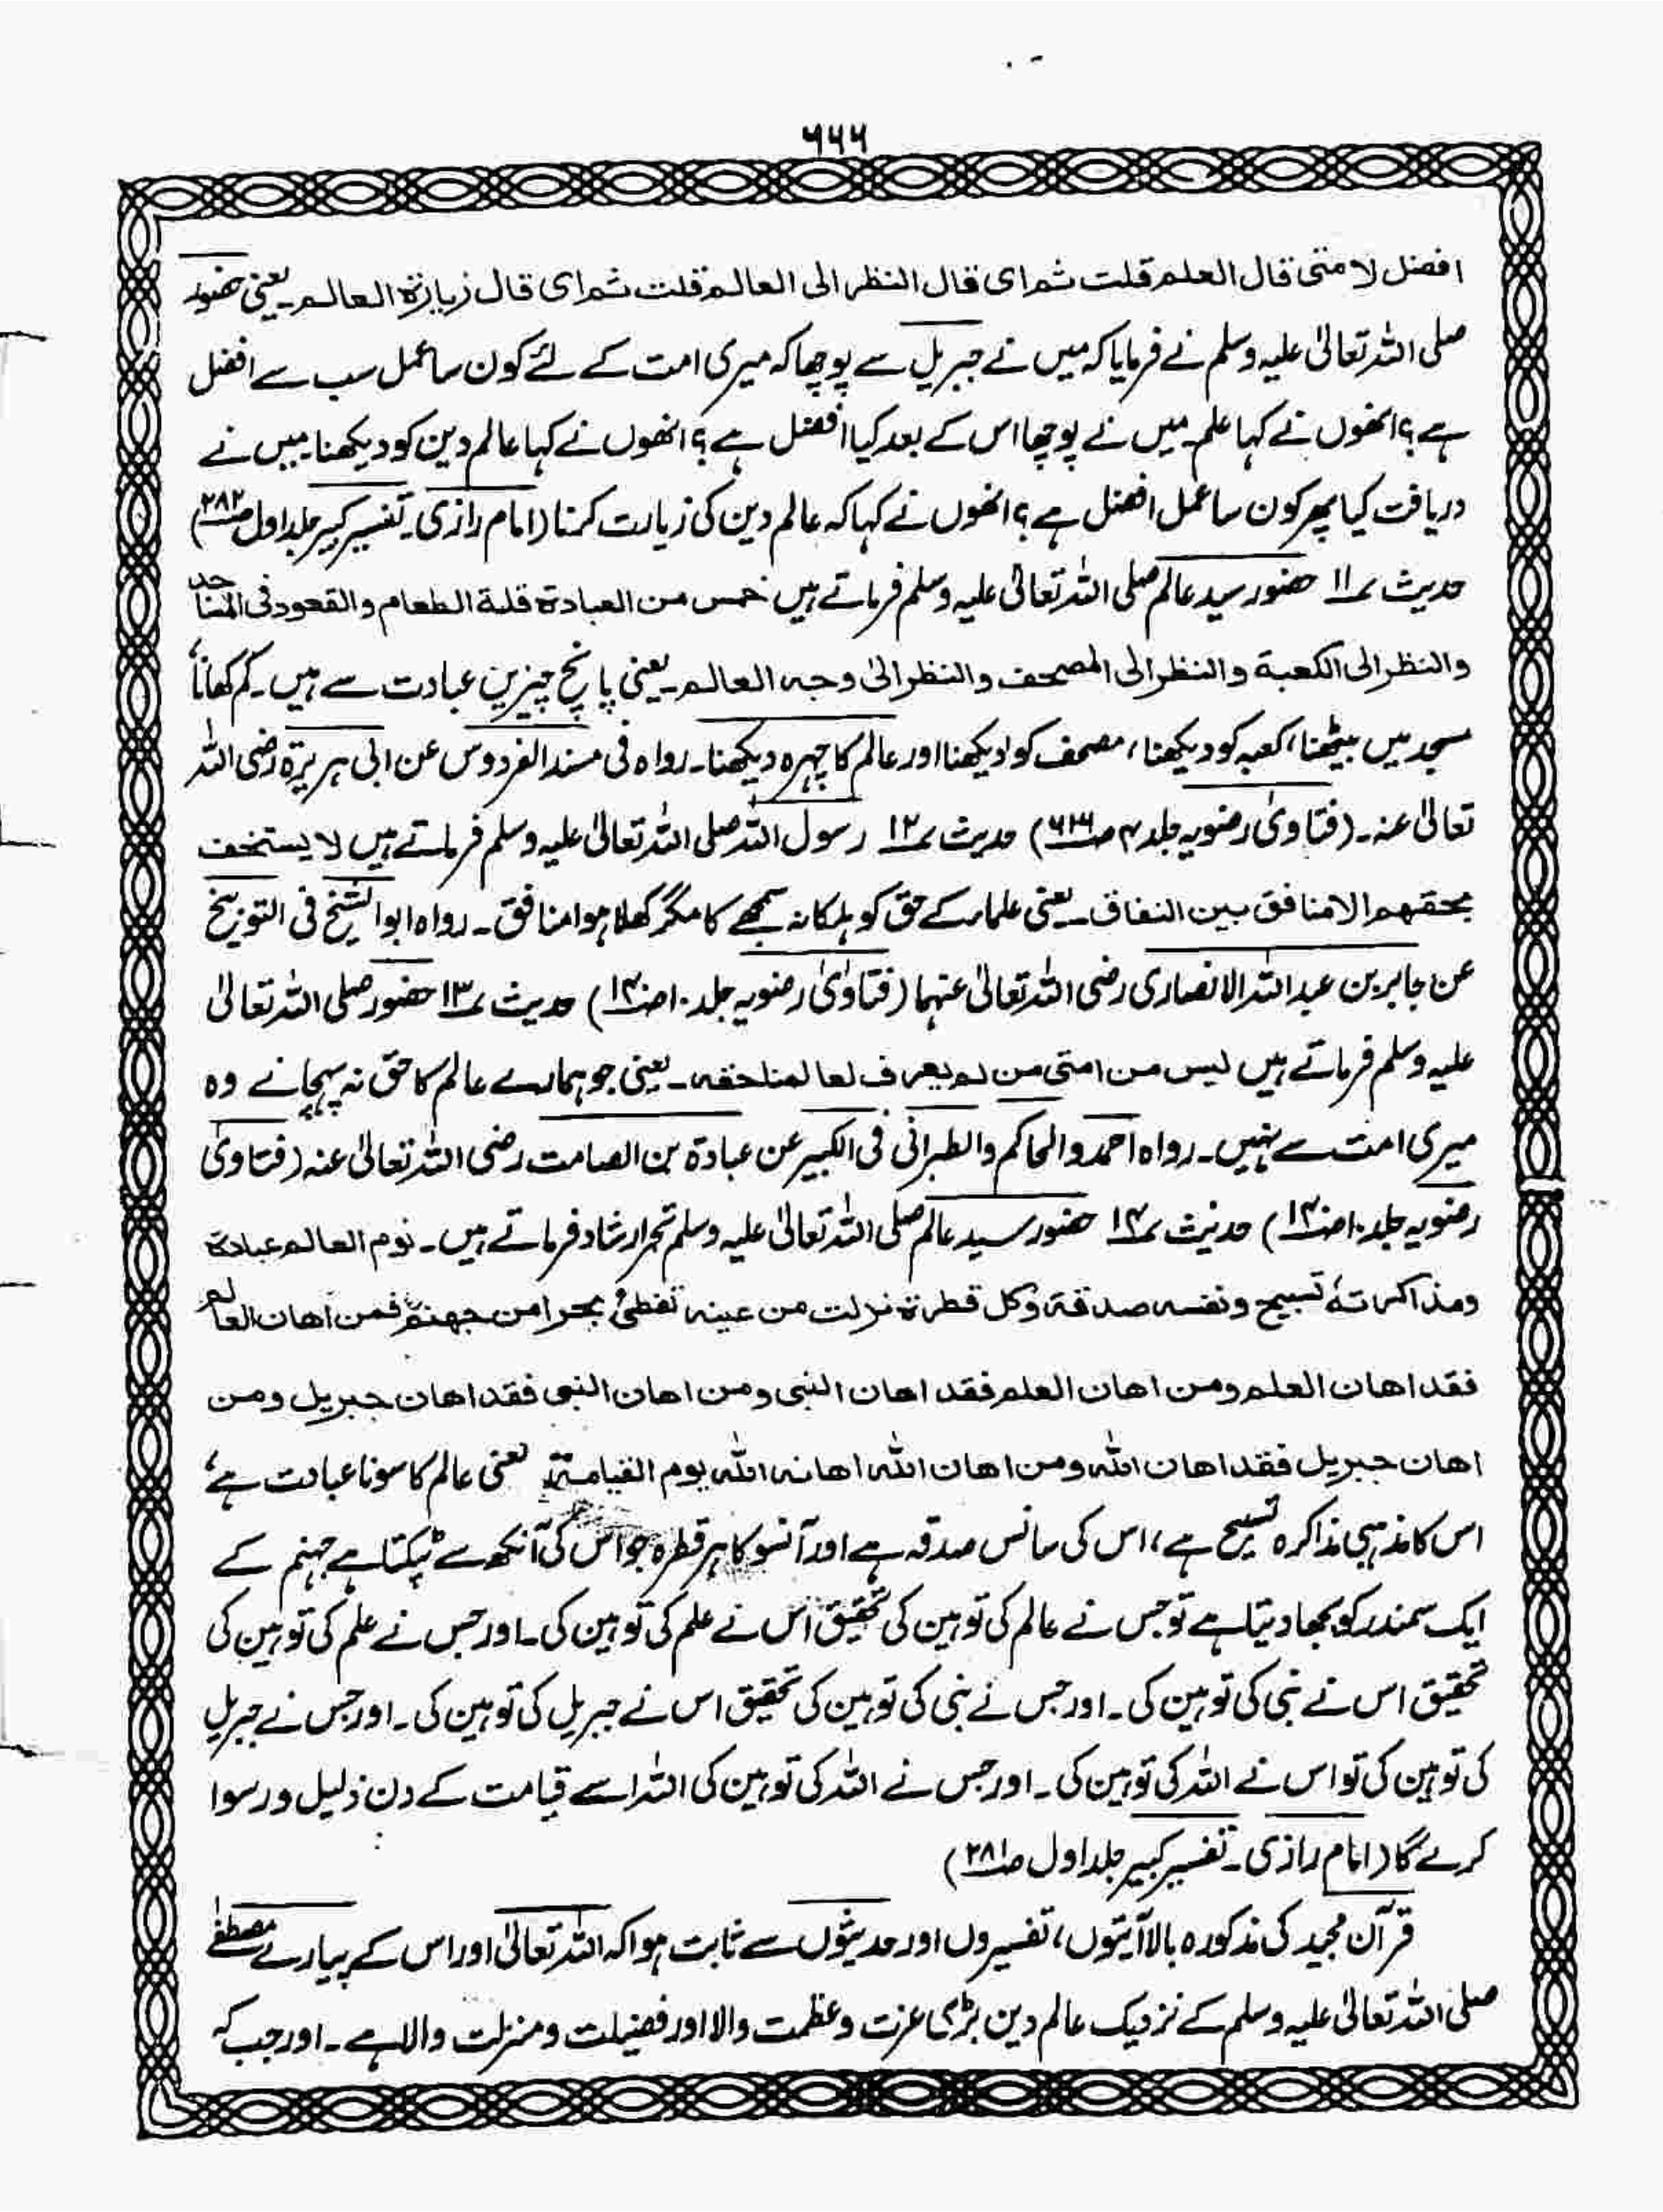 ۶۶۶
افضل لامتی قال العلم قلت ثم ای قال النظر الی العالم قلت ثم ای قال زیارة العالم۔ یعنی حضور
صلی اللہ تعالیٰ علیہ وسلم نے فرمایا کہ میں نے جبریل سے پوچھا کہ میری امت کے لئے کون سا عمل سب سے افضل
ہے؟ انھوں نے کہا علم۔ میں نے پوچھا اس کے بعد کیا افضل ہے؟ انھوں نے کہا عالم دین کو دیکھنا۔ میں نے
دریافت کیا پھر کون سا عمل افضل ہے؟ انھوں نے کہا کہ عالم دین کی زیارت کرنا (امام رازی۔ تفسیر کبیر جلد اول ص۲۸۲)
حدیث ۱۱ حضور سید عالم صلی اللہ تعالیٰ علیہ وسلم فرماتے ہیں خمس من العبادة قلة الطعام والقعود فی المساجد
والنظر الی الکعبة والنظر الی المصحف والنظر الیٰ وجہ العالم۔ یعنی پانچ چیزیں عبادت سے ہیں۔ کم کھانا،
مسجد میں بیٹھنا، کعبہ کو دیکھنا، مصحف کو دیکھنا اور عالم کا چہرہ دیکھنا۔ رواہ فی مسند الفردوس عن ابی ھریرۃ رضی اللہ
تعالیٰ عنہ۔ (فتاویٰ رضویہ جلد ۴ ص۶۳۱) حدیث ۱۲ رسول اللہ صلی اللہ تعالیٰ علیہ وسلم فرماتے ہیں لا یستخف
بحقھم الا منافق بین النفاق۔ یعنی علماء کے حق کو ہلکا نہ سمجھے گا مگر کھلا ہوا منافق۔ رواہ ابو الشیخ فی التوبیخ
عن جابر بن عبد اللہ الانصاری رضی اللہ تعالیٰ عنہما (فتاویٰ رضویہ جلد ۱۰ ص۱۴۰) حدیث ۱۳ حضور صلی اللہ تعالیٰ
علیہ وسلم فرماتے ہیں لیس من امتی من لم یعرف لعالمنا حقہ۔ یعنی جو ہمارے عالم کا حق نہ پہچانے وہ
میری امت سے نہیں۔ رواہ احمد والحاکم والطبرانی فی الکبیر عن عبادۃ بن الصامت رضی اللہ تعالیٰ عنہ (فتاویٰ
رضویہ جلد ۱۰ ص۱۴۰) حدیث ۱۴ حضور سید عالم صلی اللہ تعالیٰ علیہ وسلم تحریر ارشاد فرماتے ہیں۔ نوم العالم عبادة
ومذاکرتہ تسبیح ونفسہ صدقة وکل قطرة نزلت من عینہ تفطئ بحرا من جھنم فمن اھان العالم
فقد اھان العلم ومن اھان العلم فقد اھان النبی ومن اھان النبی فقد اھان جبریل ومن
اھان جبریل فقد اھان اللہ ومن اھان اللہ اھانہ اللہ یوم القیامة۔ یعنی عالم کا سونا عبادت ہے،
اس کا مذہبی مذاکرہ تسبیح ہے، اس کی سانس صدقہ ہے اور آنسو کا ہر قطرہ جو اس کی آنکھ سے ٹپکتا ہے جہنم کے
ایک سمندر کو بجھا دیتا ہے تو جس نے عالم کی توہین کی تحقیق اس نے علم کی توہین کی۔ اور جس نے علم کی توہین کی
تحقیق اس نے نبی کی توہین کی۔ اور جس نے نبی کی توہین کی تحقیق اس نے جبریل کی توہین کی۔ اور جس نے جبریل
کی توہین کی تو اس نے اللہ کی توہین کی۔ اور جس نے اللہ کی توہین کی اللہ اسے قیامت کے دن ذلیل و رسوا
کرے گا (امام رازی۔ تفسیر کبیر جلد اول ص۲۸۱)
قرآن مجید کی مذکورہ بالا آیتوں، تفسیروں اور حدیثوں سے ثابت ہوا کہ اللہ تعالیٰ اور اس کے پیارے مصطفےٰ
صلی اللہ تعالیٰ علیہ وسلم کے نزدیک عالم دین بڑی عزت و عظمت والا اور فضیلت و منزلت والا ہے۔ اور جب کہ